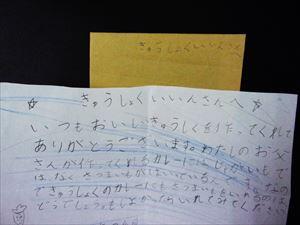 きゅうしょくいいんさんへ
☆ きゅうしょくいいんさんへ ☆
いつもおいしいきゅうしくを作ってくれて
ありがとうございますねわたしのお父
さんが作ってくれるカレーにはじゃがいもで
はなくさつまいもがはいっている なの
できゅうしょくのカレーにもさつまいもをいれるのは
どうでしょうもしよかったらいれてみてください